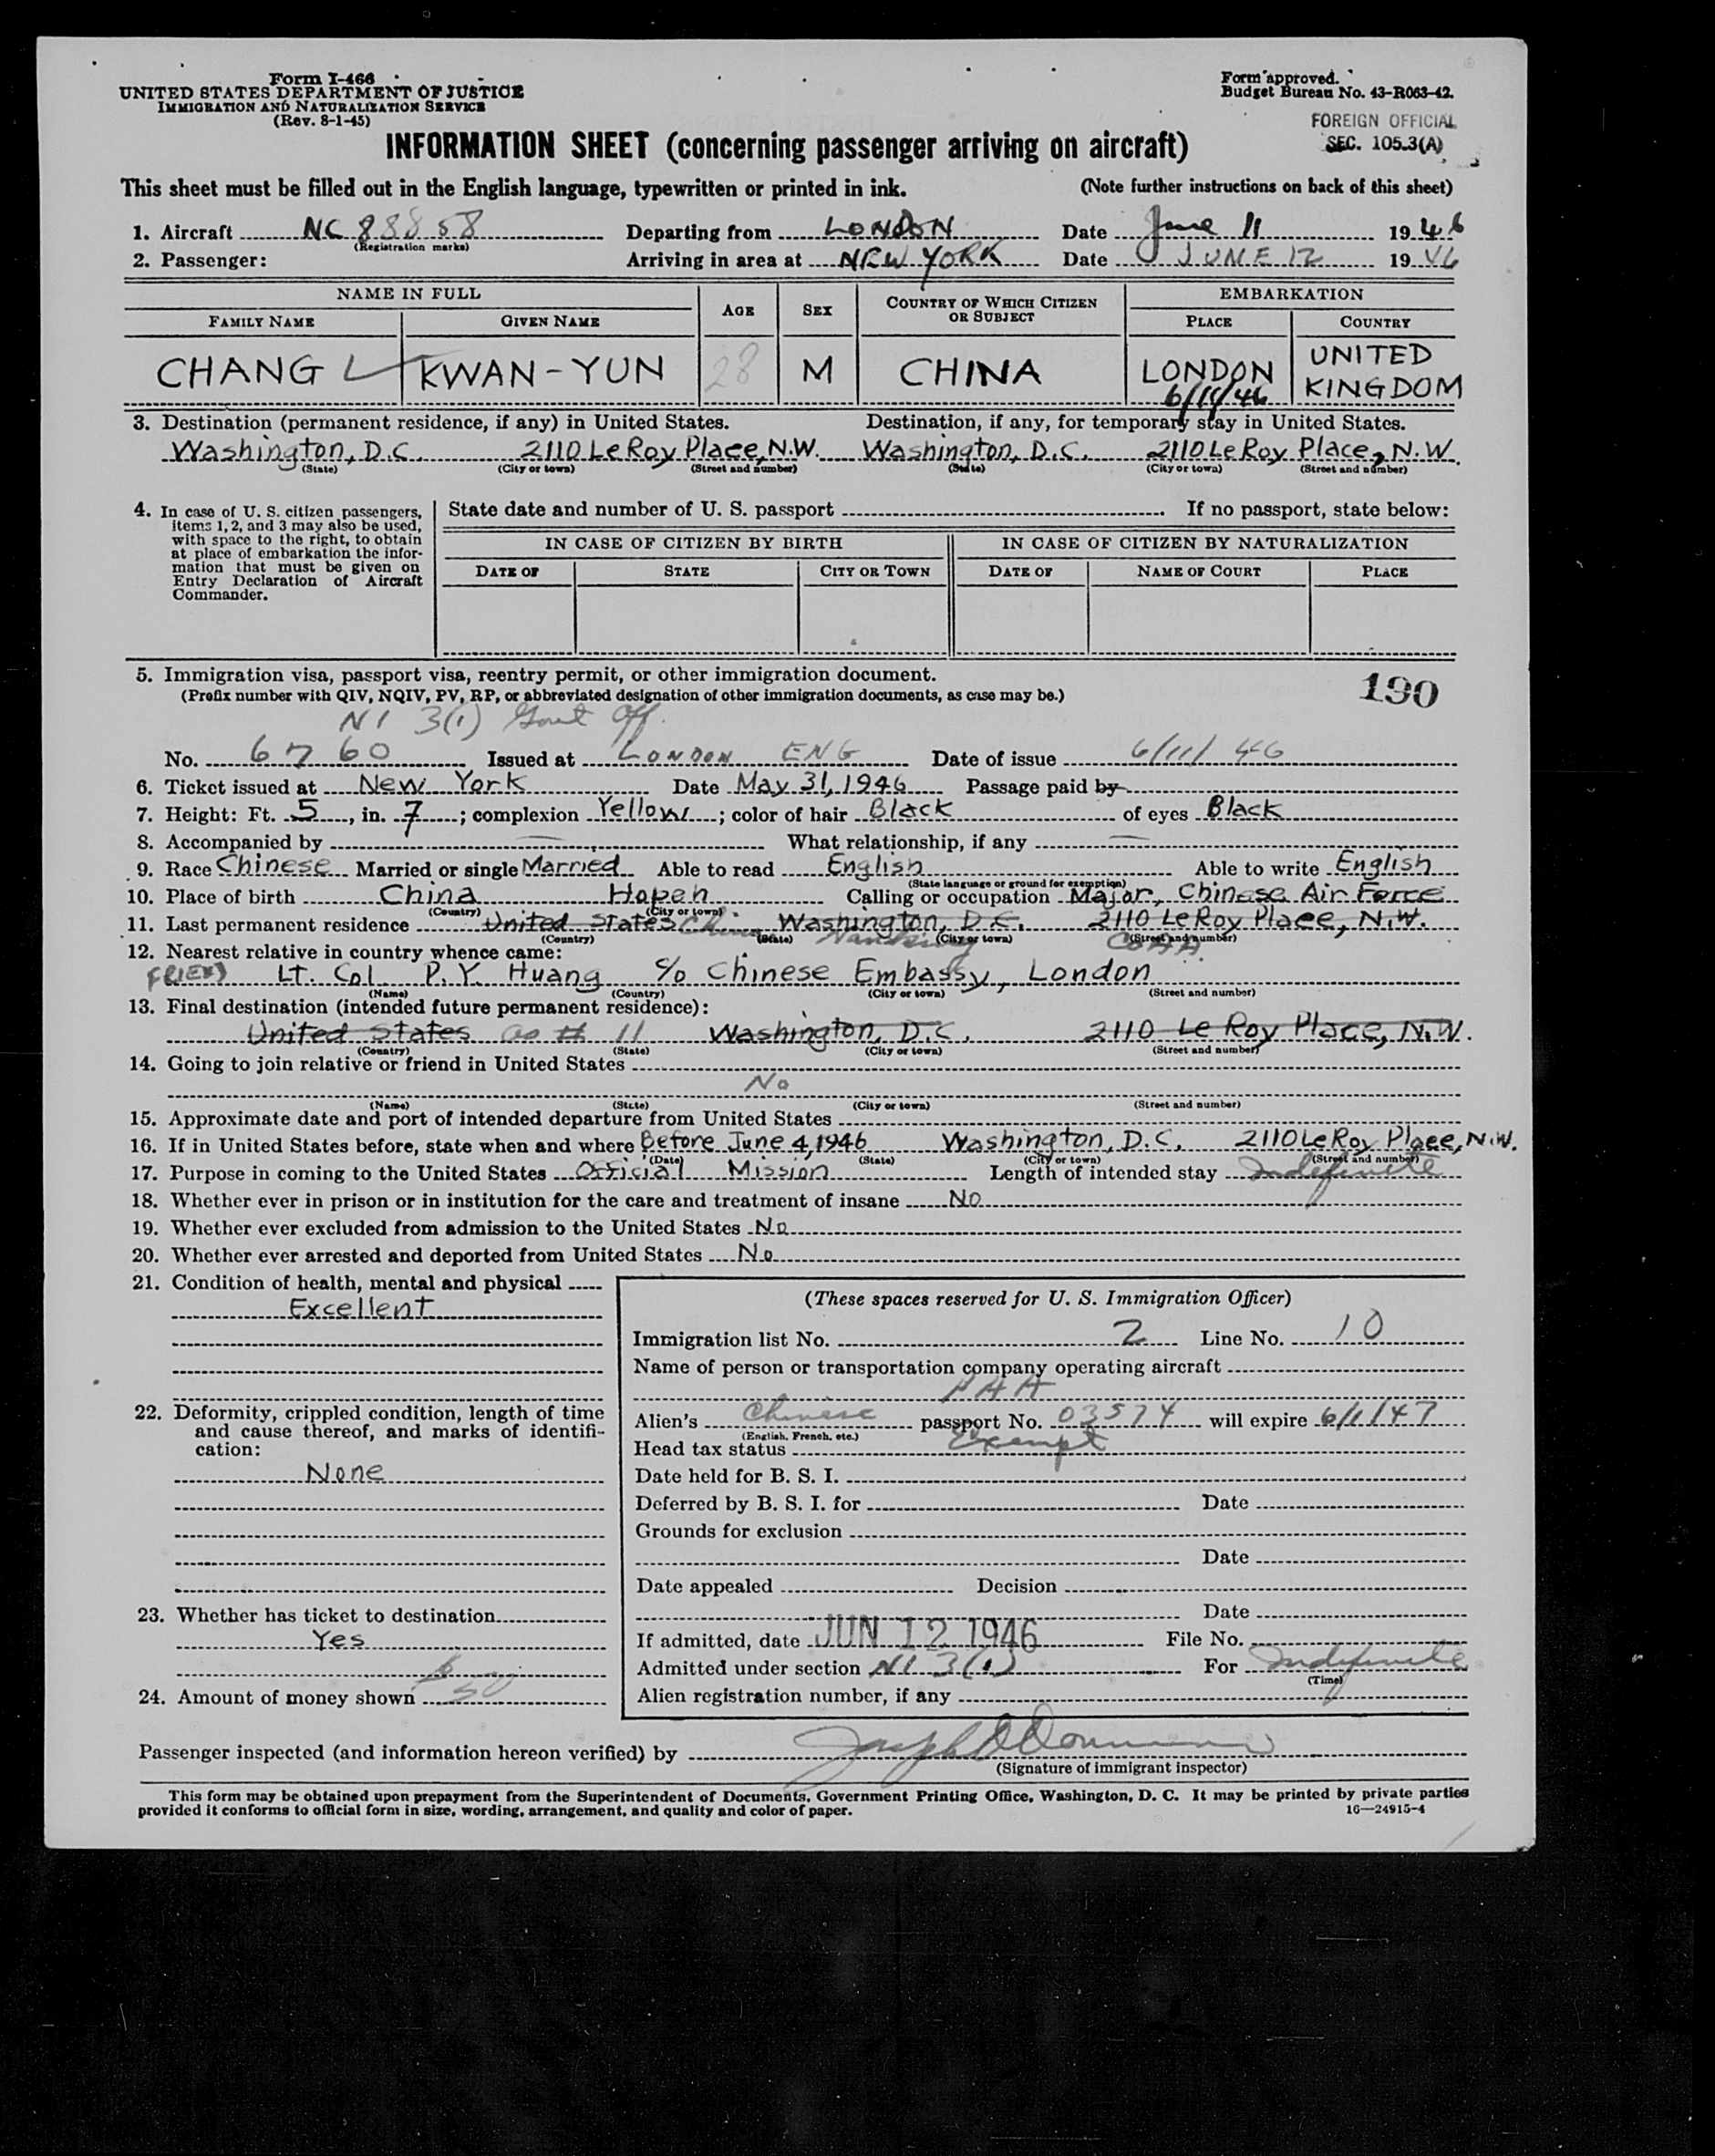 Form I-466
UNITED STATES DEPARTMENT OF JUSTICE
IMMIGRATION AND NATURALIZATION SERVICE
(Rev. 8-1-45)
Form approved.
Budget Bureau No. 43-R063-42.
FOREIGN OFFICIAL
SEC. 105.3(A)
INFORMATION SHEET (concerning passenger arriving on aircraft)
This sheet must be filled out in the English language, typewritten or printed in ink. (Note further instructions on back of this sheet)
1. Aircraft NC 88858 Departing from LONDON Date June 11 1946
(Registration marks)
2. Passenger: Arriving in area at NEW YORK Date JUNE 12 1946
NAME IN FULL AGE SEX COUNTRY OF WHICH CITIZEN OR SUBJECT EMBARKATION
FAMILY NAME GIVEN NAME PLACE COUNTRY
CHANG KWAN-YUN 28 M CHINA LONDON 6/11/46 UNITED KINGDOM
3. Destination (permanent residence, if any) in United States. Destination, if any, for temporary stay in United States.
Washington, D.C. 2110 LeRoy Place, N.W. Washington, D.C. 2110 LeRoy Place, N.W.
(State) (City or town) (Street and number) (State) (City or town) (Street and number)
4. In case of U. S. citizen passengers, items 1, 2, and 3 may also be used, with space to the right, to obtain at place of embarkation the information that must be given on Entry Declaration of Aircraft Commander.
State date and number of U. S. passport If no passport, state below:
IN CASE OF CITIZEN BY BIRTH IN CASE OF CITIZEN BY NATURALIZATION
DATE OF STATE CITY OR TOWN DATE OF NAME OF COURT PLACE
5. Immigration visa, passport visa, reentry permit, or other immigration document.
(Prefix number with QIV, NQIV, PV, RP, or abbreviated designation of other immigration documents, as case may be.)
190
NI 3(1) Govt Off.
No. 6760 Issued at LONDON ENG Date of issue 6/11/46
6. Ticket issued at New York Date May 31, 1946 Passage paid by
7. Height: Ft. 5, in. 7; complexion Yellow; color of hair Black of eyes Black
8. Accompanied by — What relationship, if any —
9. Race Chinese Married or single Married Able to read English Able to write English
(State language or ground for exemption)
10. Place of birth China Hopeh Calling or occupation Major, Chinese Air Force
(Country) (City or town)
11. Last permanent residence United States China Washington, D.C. Nanking 2110 LeRoy Place, N.W.
(Country) (State) (City or town) (Street and number)
12. Nearest relative in country whence came:
Lt. Col. P. Y. Huang c/o Chinese Embassy, London
(Name) (Country) (City or town) (Street and number)
13. Final destination (intended future permanent residence):
United States as # 11 Washington, D.C. 2110 Le Roy Place, N.W.
(Country) (State) (City or town) (Street and number)
14. Going to join relative or friend in United States
No
(Name) (State) (City or town) (Street and number)
15. Approximate date and port of intended departure from United States
16. If in United States before, state when and where Before June 4, 1946 Washington, D.C. 2110 LeRoy Place, N.W.
(Date) (State) (City or town) (Street and number)
17. Purpose in coming to the United States Official Mission Length of intended stay Indefinite
18. Whether ever in prison or in institution for the care and treatment of insane No
19. Whether ever excluded from admission to the United States No
20. Whether ever arrested and deported from United States No
21. Condition of health, mental and physical
Excellent
22. Deformity, crippled condition, length of time and cause thereof, and marks of identification:
None
23. Whether has ticket to destination
Yes
24. Amount of money shown $50
(These spaces reserved for U. S. Immigration Officer)
Immigration list No. 2 Line No. 10
Name of person or transportation company operating aircraft
PAA
Alien's Chinese passport No. 03574 will expire 6/1/47
(English, French, etc.)
Head tax status Exempt
Date held for B. S. I.
Deferred by B. S. I. for Date
Grounds for exclusion
Date
Date appealed Decision
Date
If admitted, date JUN 12 1946 File No.
Admitted under section NI 3(1) For Indefinite
(Time)
Alien registration number, if any
Passenger inspected (and information hereon verified) by
(Signature of immigrant inspector)
This form may be obtained upon prepayment from the Superintendent of Documents, Government Printing Office, Washington, D. C. It may be printed by private parties
provided it conforms to official form in size, wording, arrangement, and quality and color of paper. 16—24915-4